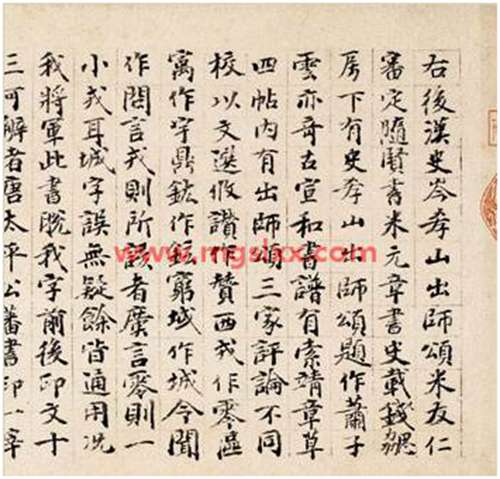 右後漢史岑孝山出師頌米友仁
審定隨賢書米元章書史載錢勰
房下有史孝山出師頌題作蕭子
雲亦奇古宣和書譜有索靖章草
四帖內有出師頌三家評論不同
校以文選攸讚作贊西戎作零區
寓作宇鼎作鉉窮域作城令聞
作問言我則所誤者廣言零則一
小戎耳城字誤無疑餘皆通用況
我將軍此書既我字前後印文十
三可辨者唐太平公蕃書印一宰